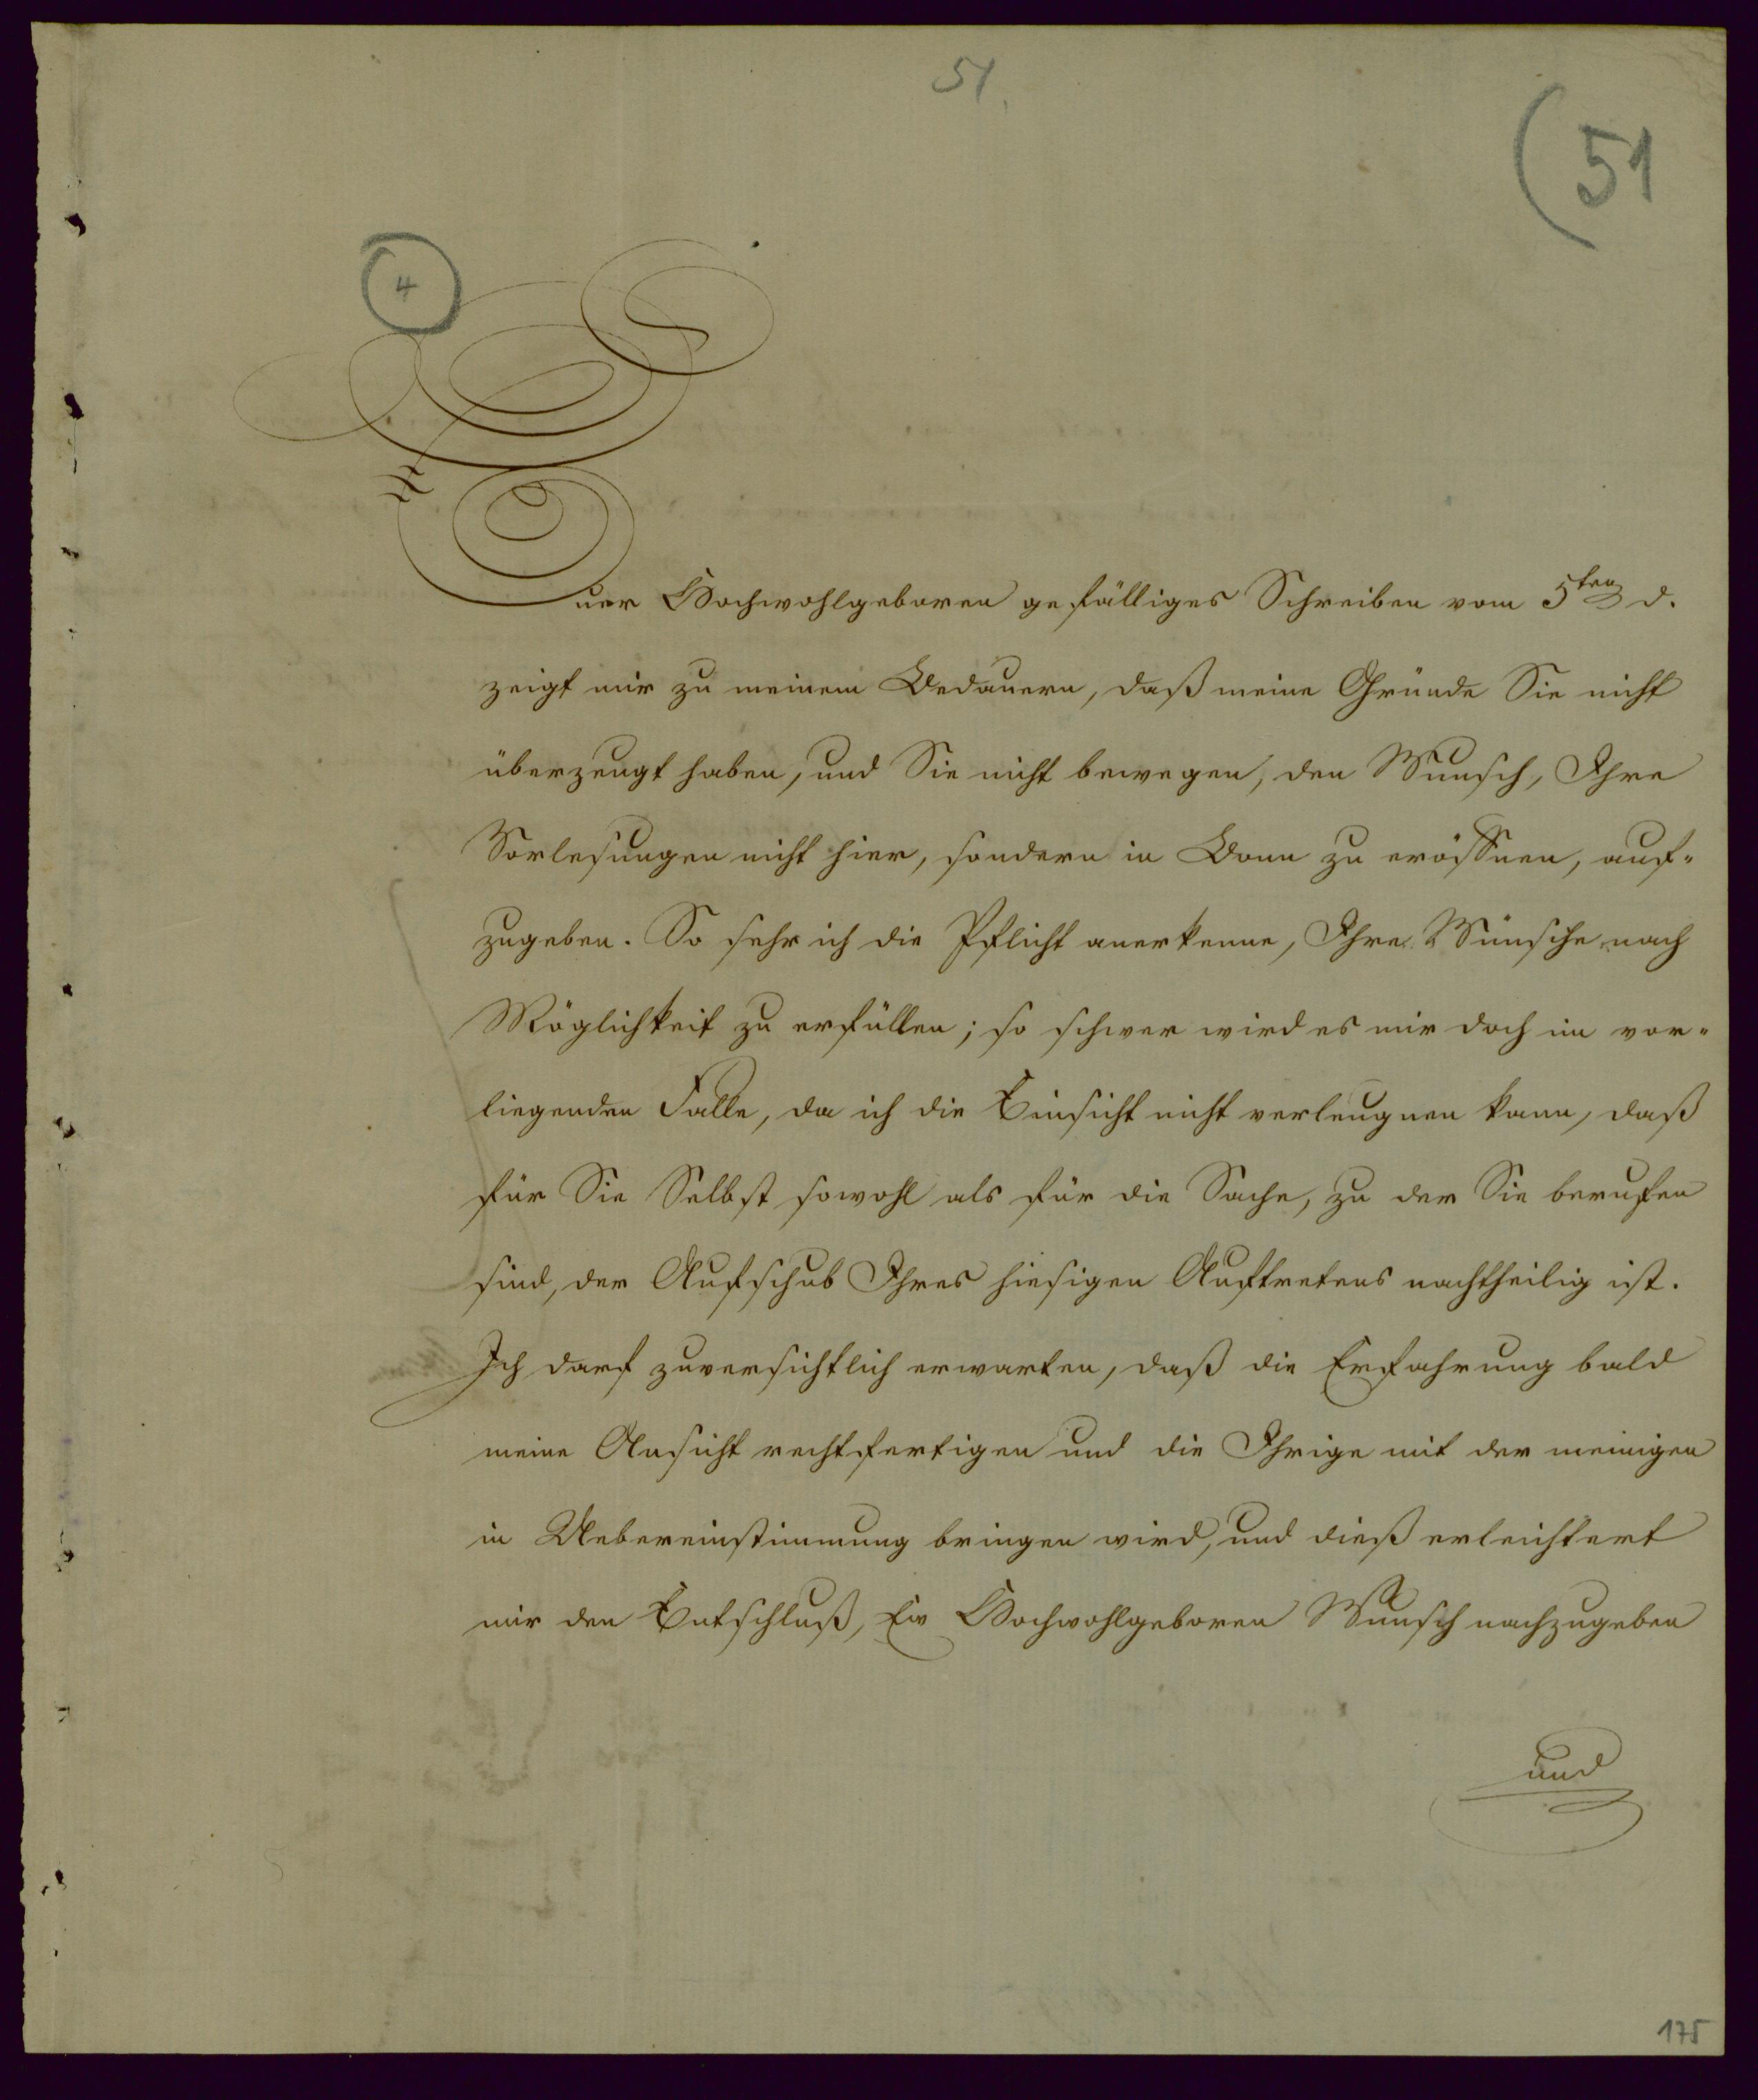 51.
(51
4
Euer Hochwohlgeboren gefälliges Schreiben vom 5ten d.
zeigt mir zu meinem Bedauern, daß meine Gründe Sie nicht
überzeugt haben, und Sie nicht bewegen, den Wunsch, Ihre
Vorlesungen nicht hier, sondern in Bonn zu eröffnen, auf-
zugeben. So sehr ich die Pflicht anerkenne, Ihre Wünsche nach
Möglichkeit zu erfüllen; so schwer wird es mir doch im vor-
liegenden Falle, da ich die Einsicht nicht verleugnen kann, daß
für Sie Selbst sowohl als für die Sache, zu der Sie berufen
sind, der Aufschub Ihres hiesigen Auftretens nachtheilig ist.
Ich darf zuversichtlich erwarten, daß die Erfahrung bald
meine Ansicht rechtfertigen und die Ihrige mit der meinigen
in Uebereinstimmung bringen wird, und dieß erleichtert
mir den Entschluß, Ew Hochwohlgeboren Wunsch nachzugeben
und
175